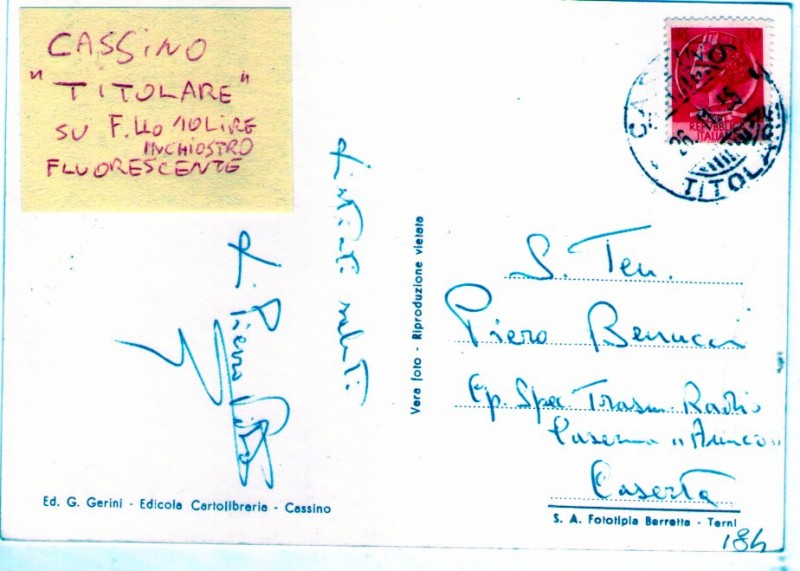 CASSINO
"TITOLARE"
SU F.LLO 10 LIRE
INCHIOSTRO
FLUORESCENTE
REPUBBLICA
ITALIANA
TITOLARE
Distinti saluti
Vera foto - Riproduzione vietata
S. Ten.
Piero Benucci
Cp. Spec Trasm Radio
Caserma
Caserta
Ed. G. Gerini - Edicola Cartolibreria - Cassino
S. A. Fototipia Berretta - Terni
184